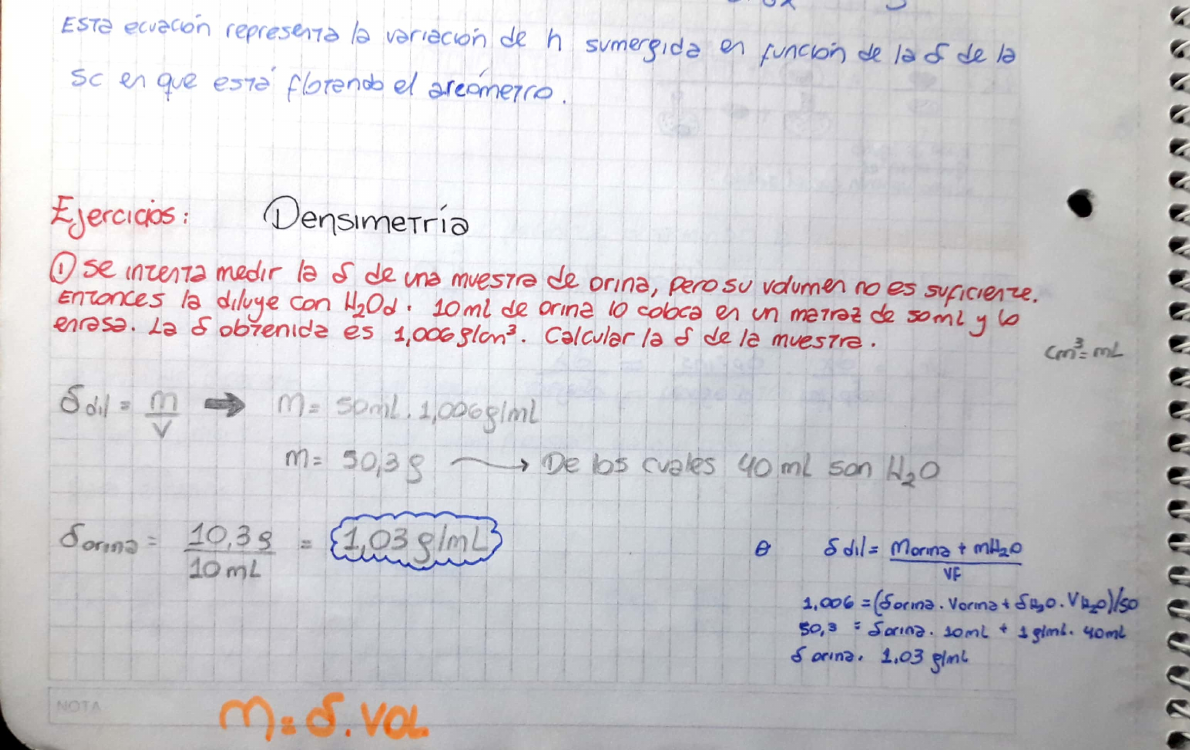 Esta ecuación representa la variación de h sumergida en función de la δ de la
sc en que está flotando el areómetro.
Ejercicios: Densimetría
① Se intenta medir la δ de una muestra de orina, pero su volumen no es suficiente.
Entonces la diluye con H₂Od. 10ml de orina lo coloca en un matraz de 50ml y lo
enrasa. La δ obtenida es 1,006 g/cm³. Calcular la δ de la muestra.
cm³=mL
δdil = m/V ➡ m= 50mL . 1,006g/ml
m= 50,3 g → De los cuales 40 ml son H₂O
δorina = 10,3 g / 10 mL = 1,03 g/mL
δdil = morina + mH₂O / VF
1,006 = (δorina . Vorina + δH₂O . VH₂O)/50
50,3 = δorina . 10mL + 1 g/ml . 40ml
δorina . 1,03 g/ml
NOTA
m = δ . VOL.